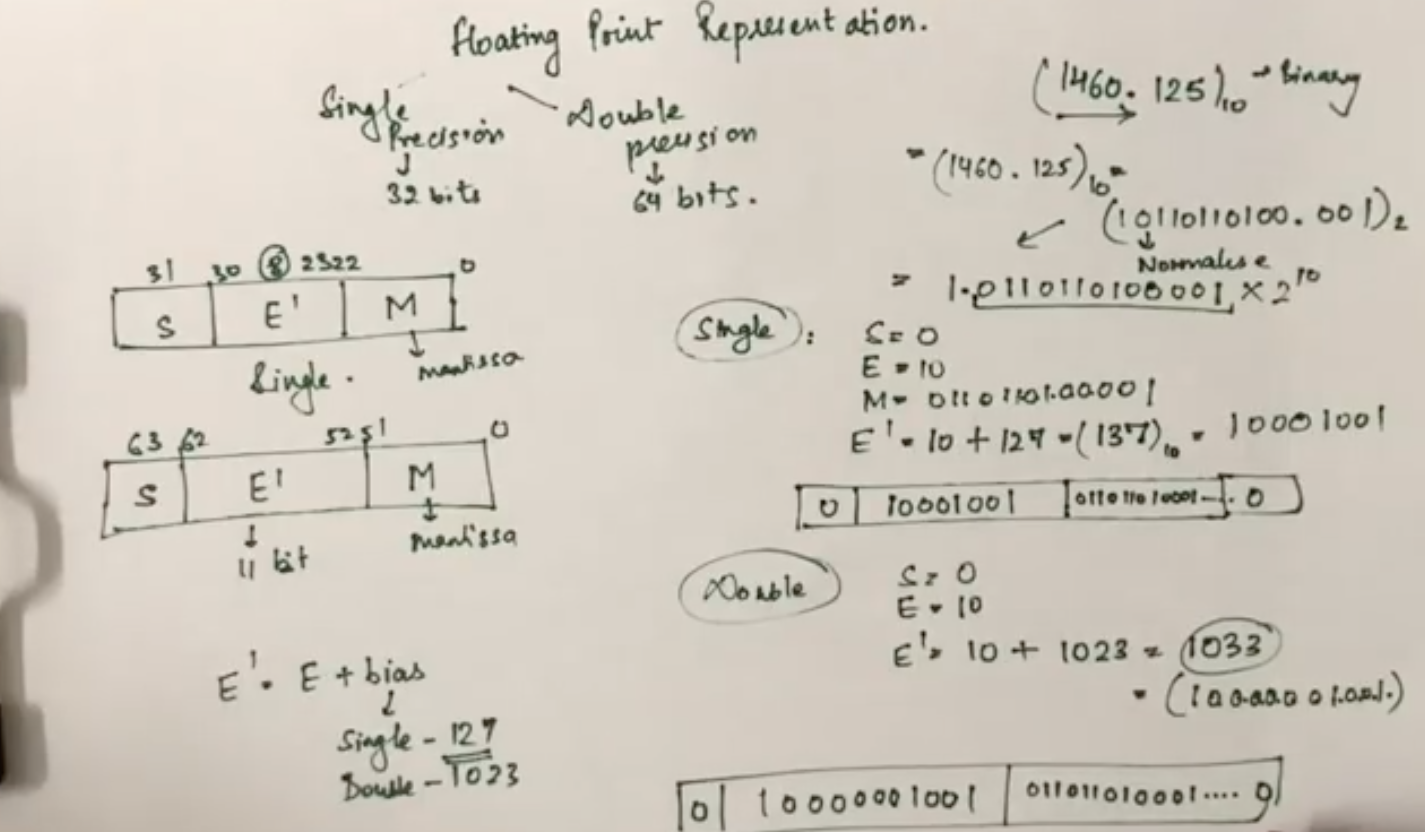 Floating Point Representation.
Single Precision
↓
32 bits
Double precision
↓
64 bits.
31 30 ⑧ 23 22 0
S E' M
mantissa
Single.
63 62 52 51 0
S E' M
11 bit
mantissa
E' = E + bias
Single - 127
Double - 1023
(1460.125)₁₀ → Binary
= (1460.125)₁₀ =
(10110110100.001)₂
Normalise
= 1.0110110100001 × 2¹⁰
Single :
S = 0
E = 10
M = 0110110100001
E' = 10 + 127 = (137)₁₀ = 10001001
0 10001001 01101101 0001--.. 0
Double
S = 0
E = 10
E' = 10 + 1023 = 1033
= (10000001001)
0 10000001001 011011010001.... 0